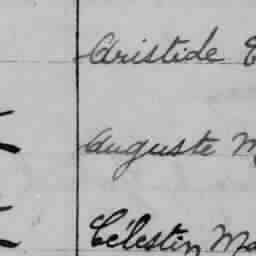 Aristide
Auguste M
Célestin Ma